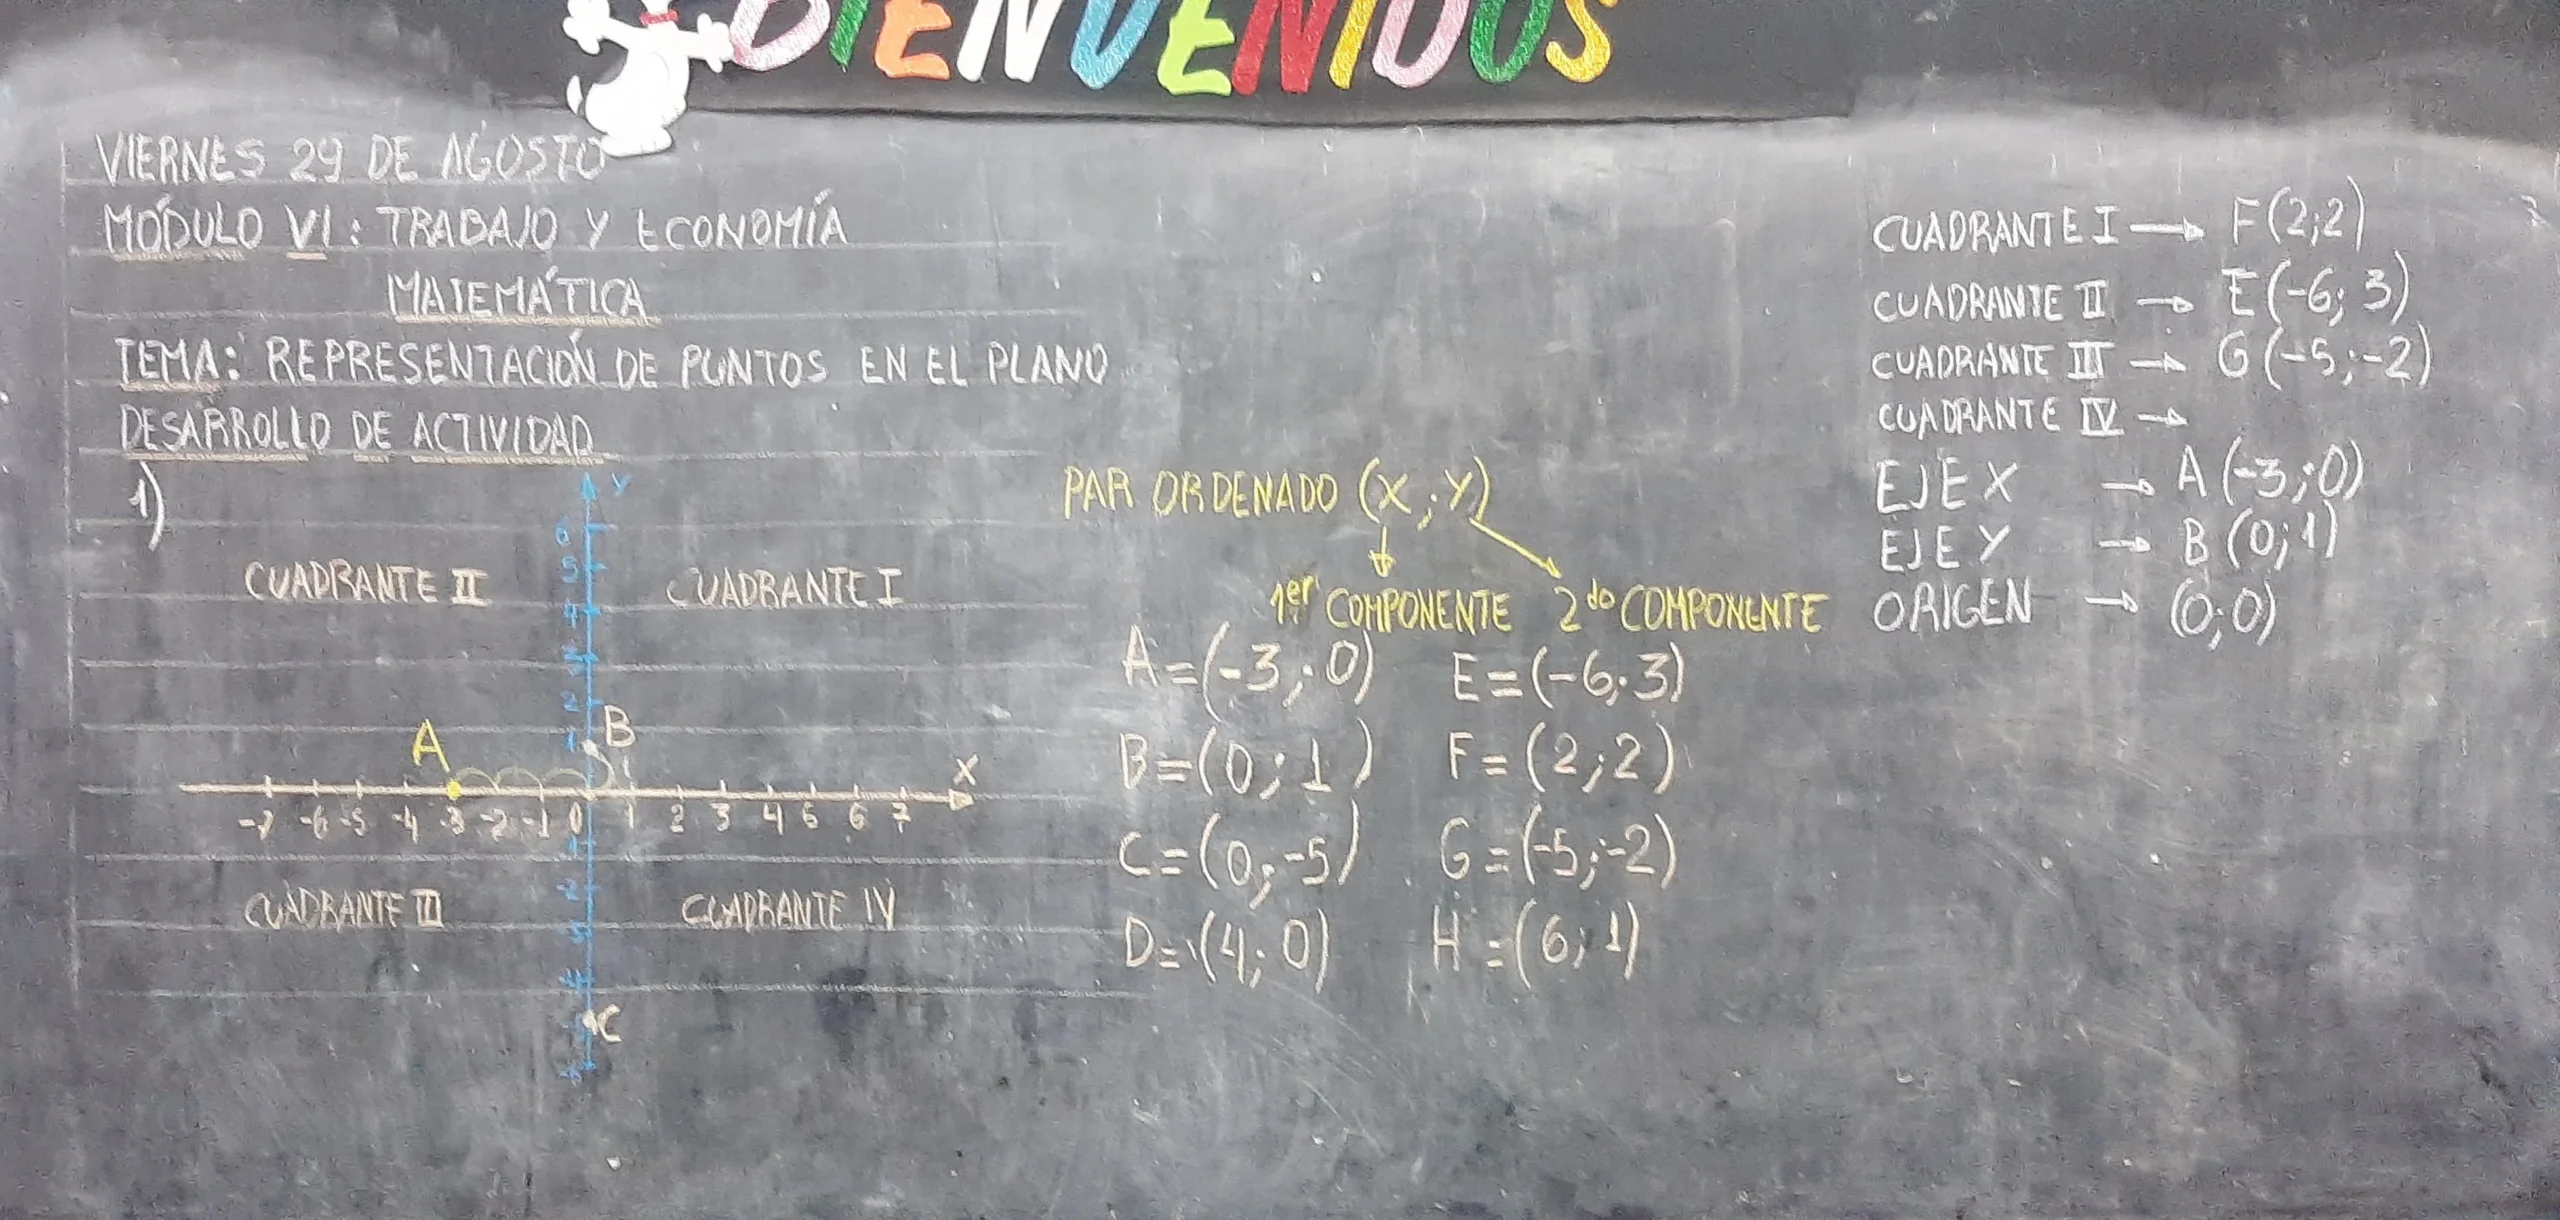 BIENVENIDOS
VIERNES 29 DE AGOSTO
MÓDULO VI: TRABAJO Y ECONOMÍA
MATEMÁTICA
TEMA: REPRESENTACIÓN DE PUNTOS EN EL PLANO
DESARROLLO DE ACTIVIDAD
1)
Y
6
5
CUADRANTE II CUADRANTE I
4
3
2
A 1 B
X
-7 -6 -5 -4 -3 -2 -1 0 1 2 3 4 5 6 7
-1
-2
CUADRANTE III CUADRANTE IV
-3
-4
C
-6
PAR ORDENADO (X;Y)
1er COMPONENTE 2do COMPONENTE
A=(-3;0) E=(-6;3)
B=(0;1) F=(2;2)
C=(0;-5) G=(-5;-2)
D=(4;0) H=(6;1)
CUADRANTE I → F(2;2)
CUADRANTE II → E(-6;3)
CUADRANTE III → G(-5;-2)
CUADRANTE IV →
EJE X → A(-3;0)
EJE Y → B(0;1)
ORIGEN → (0;0)